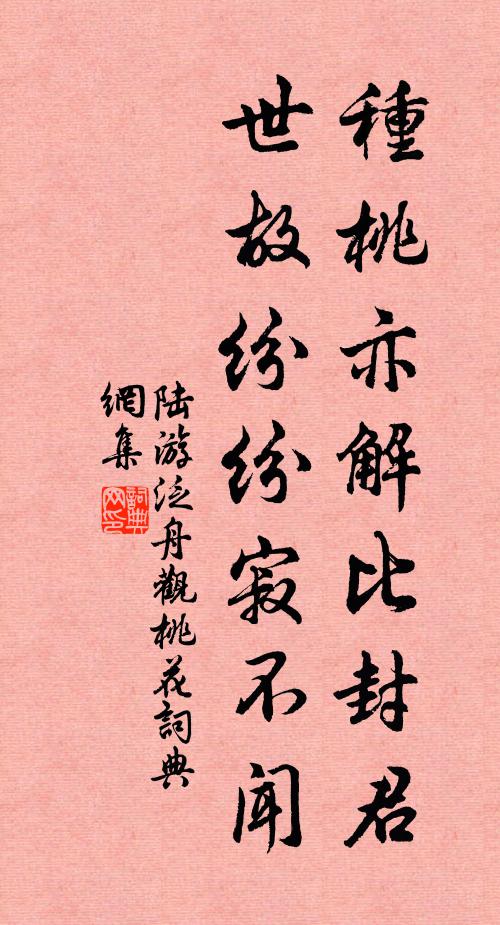 種桃亦解比封君
世故紛紛寂不聞
陆游泛舟觀桃花詞典
網集
詞典
网印